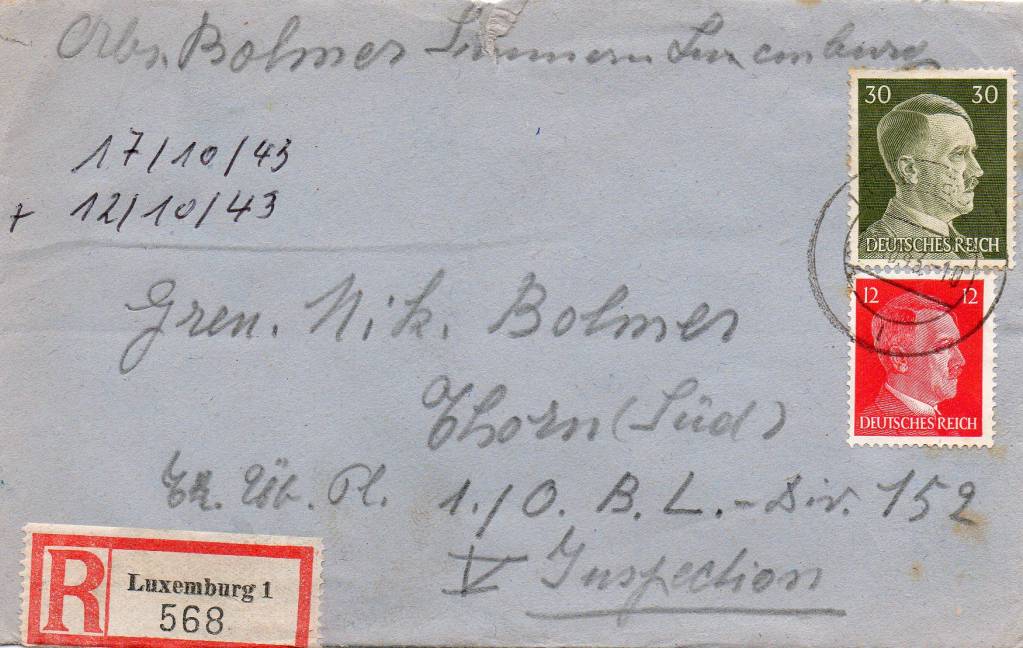 Bolmer Simmern Luxemburg
30 30
17/10/43
+ 12/10/43
DEUTSCHES REICH
12 12
Gren. Nik. Bolmer
DEUTSCHES REICH
Thorn (Süd)
Üb. Pl. 1./O. B. L. - Div. 152
V Inspection
R Luxemburg 1
568